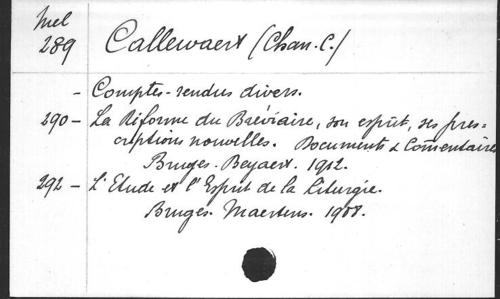 Mel
289 Callewaert (Chan. C.)
- Comptes-rendus divers.
290 - La Réforme du Bréviaire, son esprit, ses pres-
criptions nouvelles. Documents & Commentaires
Bruges. Beyaert. 1912.
292 - L'Etude et l'Esprit de la Liturgie.
Bruges. Maertens. 1908.